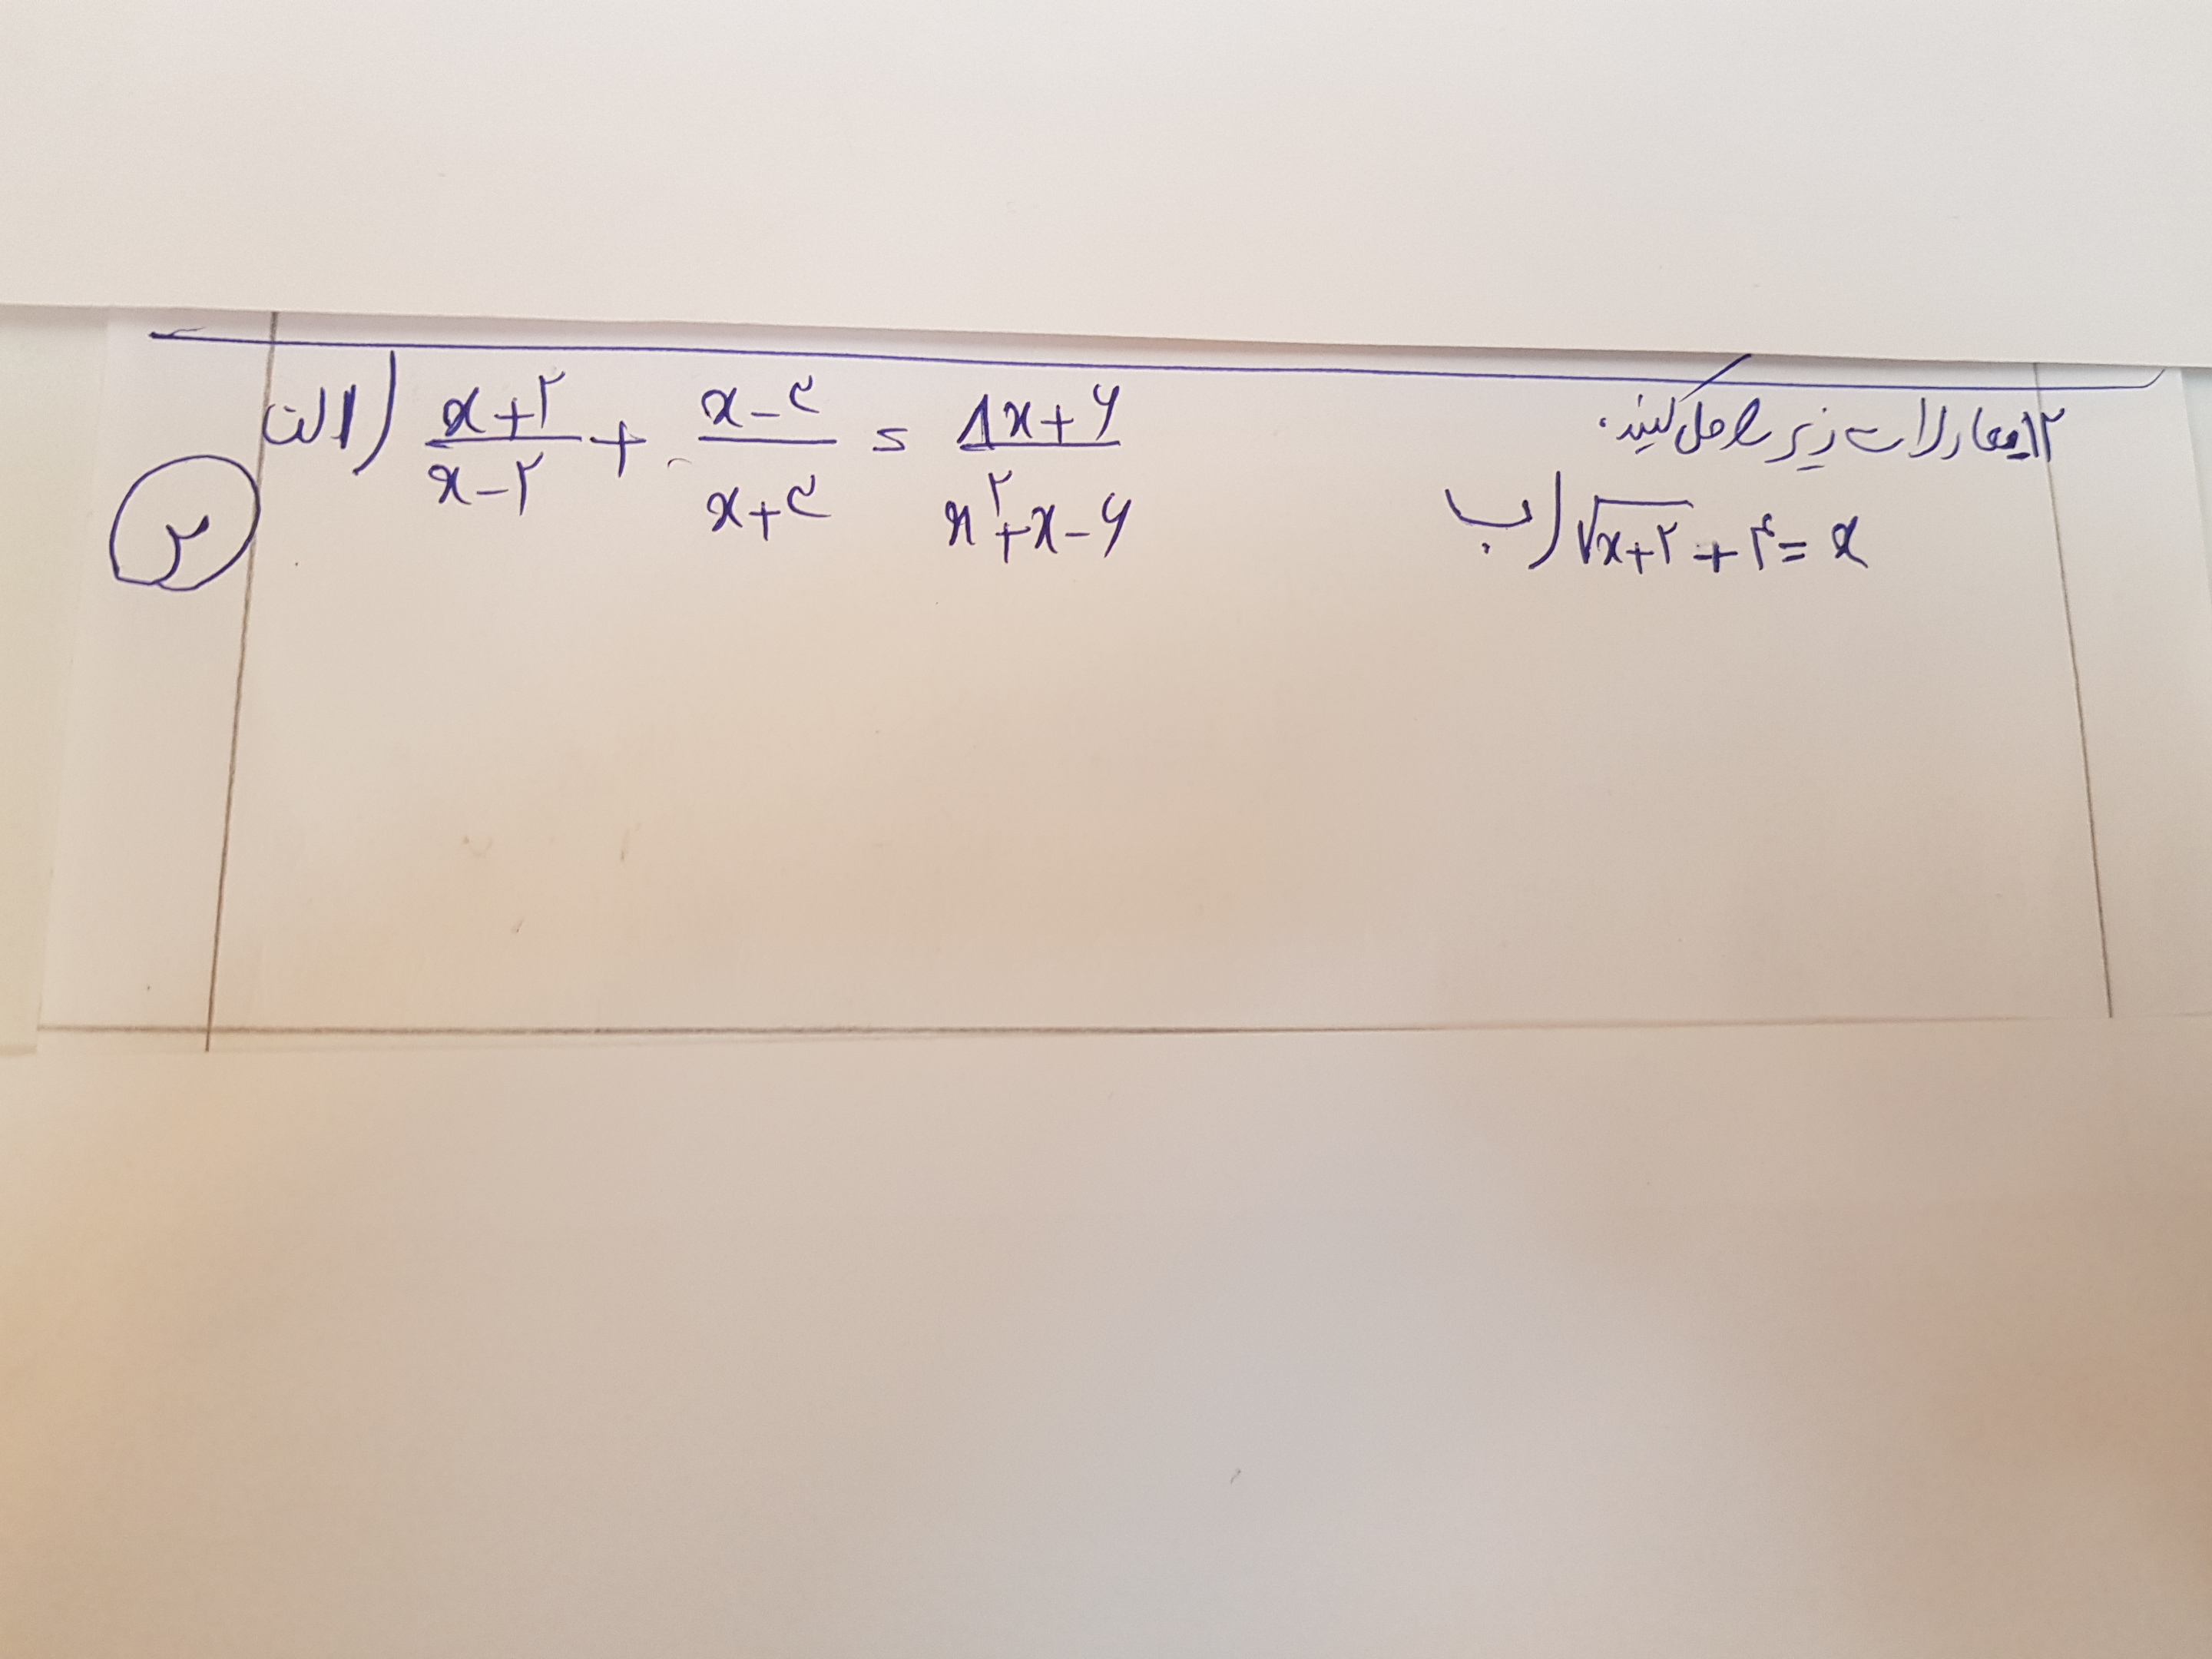 ۱۲) معادلات زیر را حل کنید.
الف) (x+۲)/(x-۲) + (x-۳)/(x+۳) = (۸x+۶)/(x^۲+x-۶)
ب) √(x+۲) + ۴ = x
۲